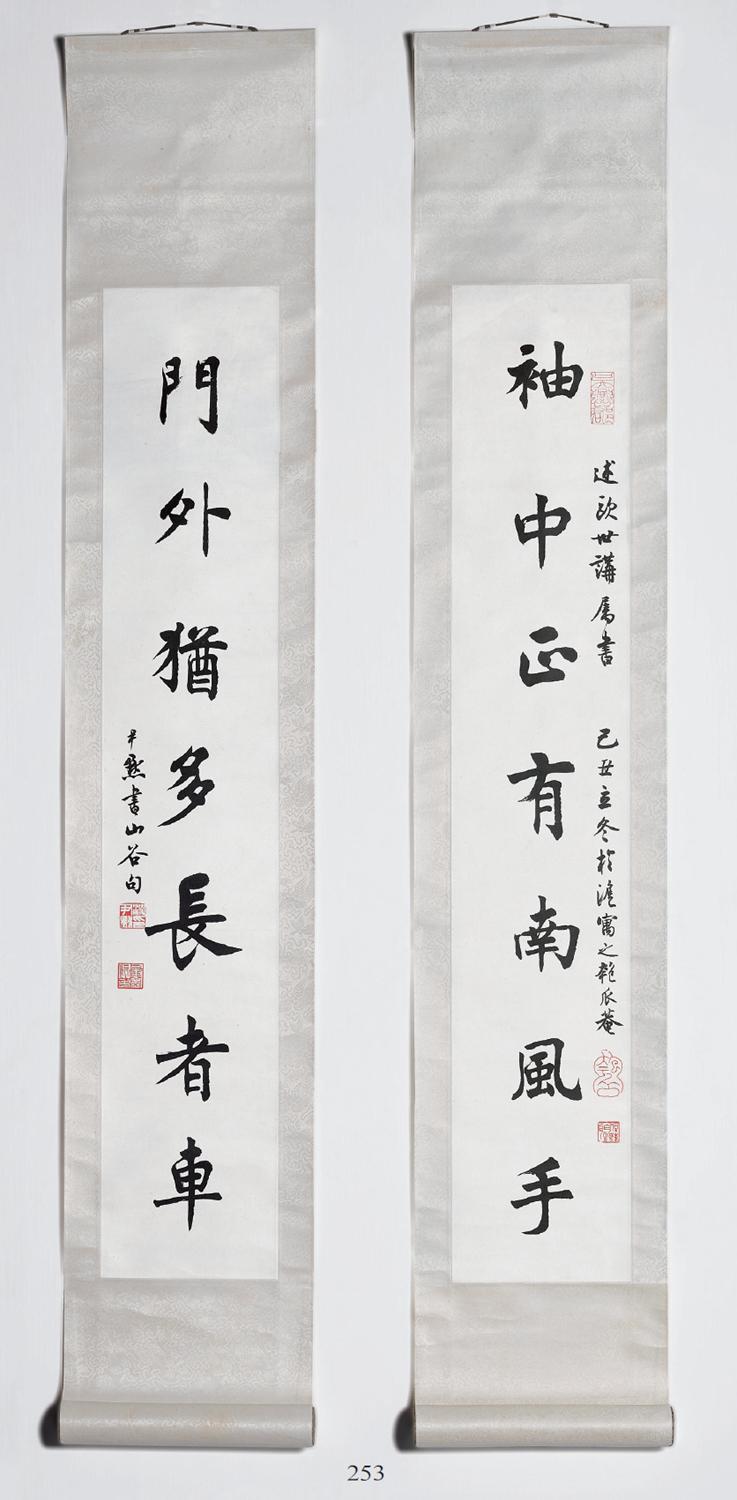 袖中正有南風手
述歐世講屬書
己丑立冬於滬寓之匏瓜菴
門外猶多長者車
尹默書山谷句
253